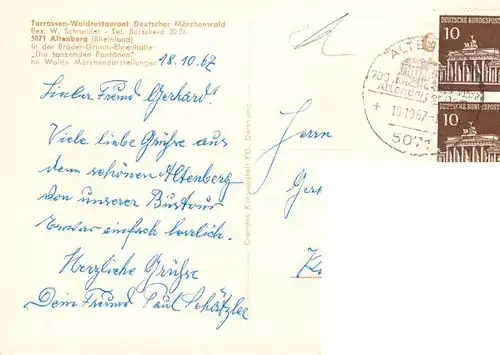 Terrassen-Waldrestaurant Deutscher Märchenwald
Bes. W. Schneider - Tel. Burscheid 20 28
5071 Altenberg (Rheinland)
in der Brüder-Grimm-Ehrenhalle
"Die tanzenden Fontänen"
Im Walde Märchendarstellungen
18.10.67
Lieber Freund Gerhard!
Viele liebe Grüße aus
dem schönen Altenberg
von unserer Bustour
einfach herrlich.
Herzliche Grüße
Dein Freund Paul
Cramers Kunstanstalt KG., Dortmund
Herrn
ALTENB
700
19.10.67
5071
10
DEUTSCHE BUNDESPOST
10